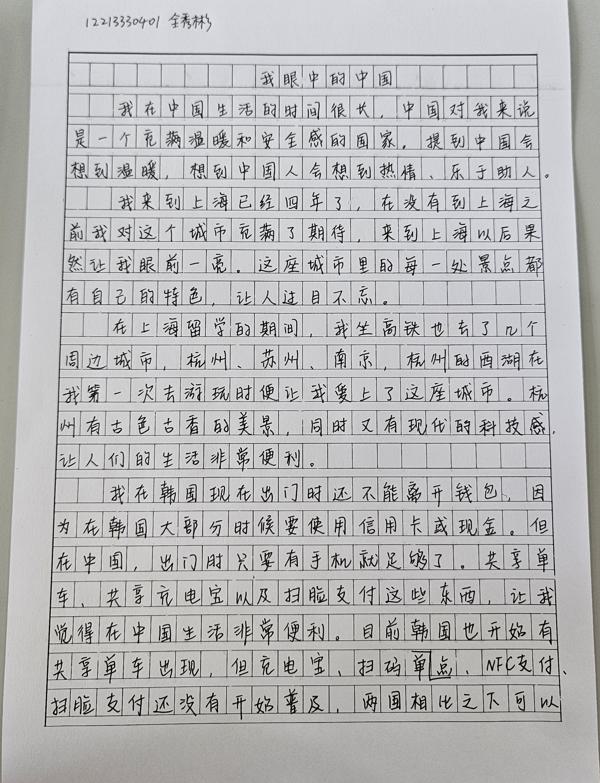 12213330401 全秀彬
我眼中的中国
我在中国生活的时间很长，中国对我来说
是一个充满温暖和安全感的国家，提到中国会
想到温暖，想到中国人会想到热情、乐于助人。
我来到上海已经四年了，在没有到上海之
前我对这个城市充满了期待，来到上海以后果
然让我眼前一亮。这座城市里的每一处景点都
有自己的特色，让人过目不忘。
在上海留学的期间，我坐高铁也去了几个
周边城市，杭州、苏州、南京，杭州的西湖在
我第一次去游玩时便让我爱上了这座城市。杭
州有古色古香的美景，同时又有现代的科技感，
让人们的生活非常便利。
我在韩国现在出门时还不能离开钱包，因
为在韩国大部分时候要使用信用卡或现金。但
在中国，出门时只要有手机就足够了。共享单
车、共享充电宝以及扫脸支付这些东西，让我
觉得在中国生活非常便利。目前韩国也开始有
共享单车出现，但充电宝、扫码单点、NFC支付、
扫脸支付还没有开始普及，两国相比之下可以